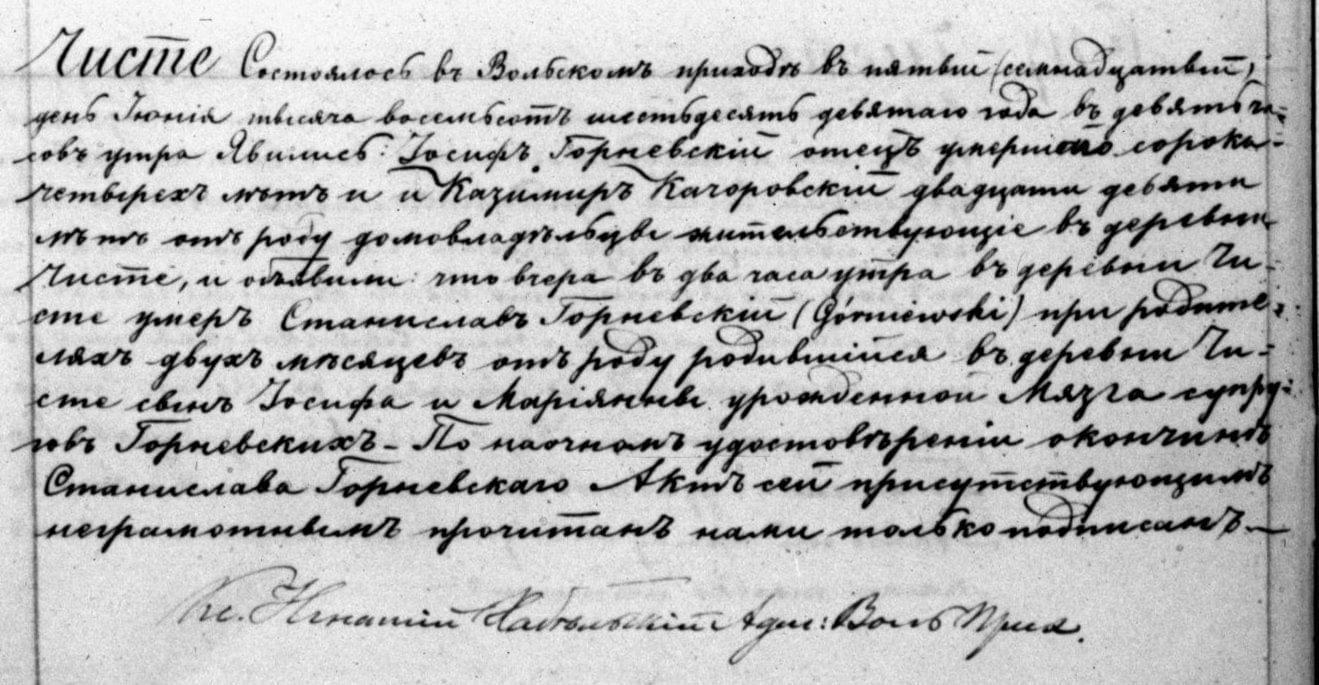 Чисте Состоялось въ Вольскомъ приходѣ въ пятый (семнадцатый)
день Іюнія тысяча восемьсотъ шестьдесятъ девятаго года въ девять ча-
совъ утра Явились: Іосифъ Горневскій отецъ умершаго сорока-
четырехъ лѣтъ и и Казимиръ Качоровскій двадцати девяти
лѣтъ отъ роду домовладѣльцы жительствующіе въ деревни
Чисте, и объявили: что вчера въ два часа утра въ деревни Чи-
сте умеръ Станиславъ Горневскій (Górniewski) при родите-
ляхъ двухъ мѣсяцевъ отъ роду родившійся въ деревни Чи-
сте сынъ Іосифа и Маріянны урожденной Мязга супру-
говъ Горневскихъ - По наочномъ удостовѣреніи окончинѣ
Станислава Горневскаго Актъ сей присутствующимъ
неграмотнымъ прочитанъ нами только подписанъ.—
Кс. Игнатій Адм: Воль Прих.